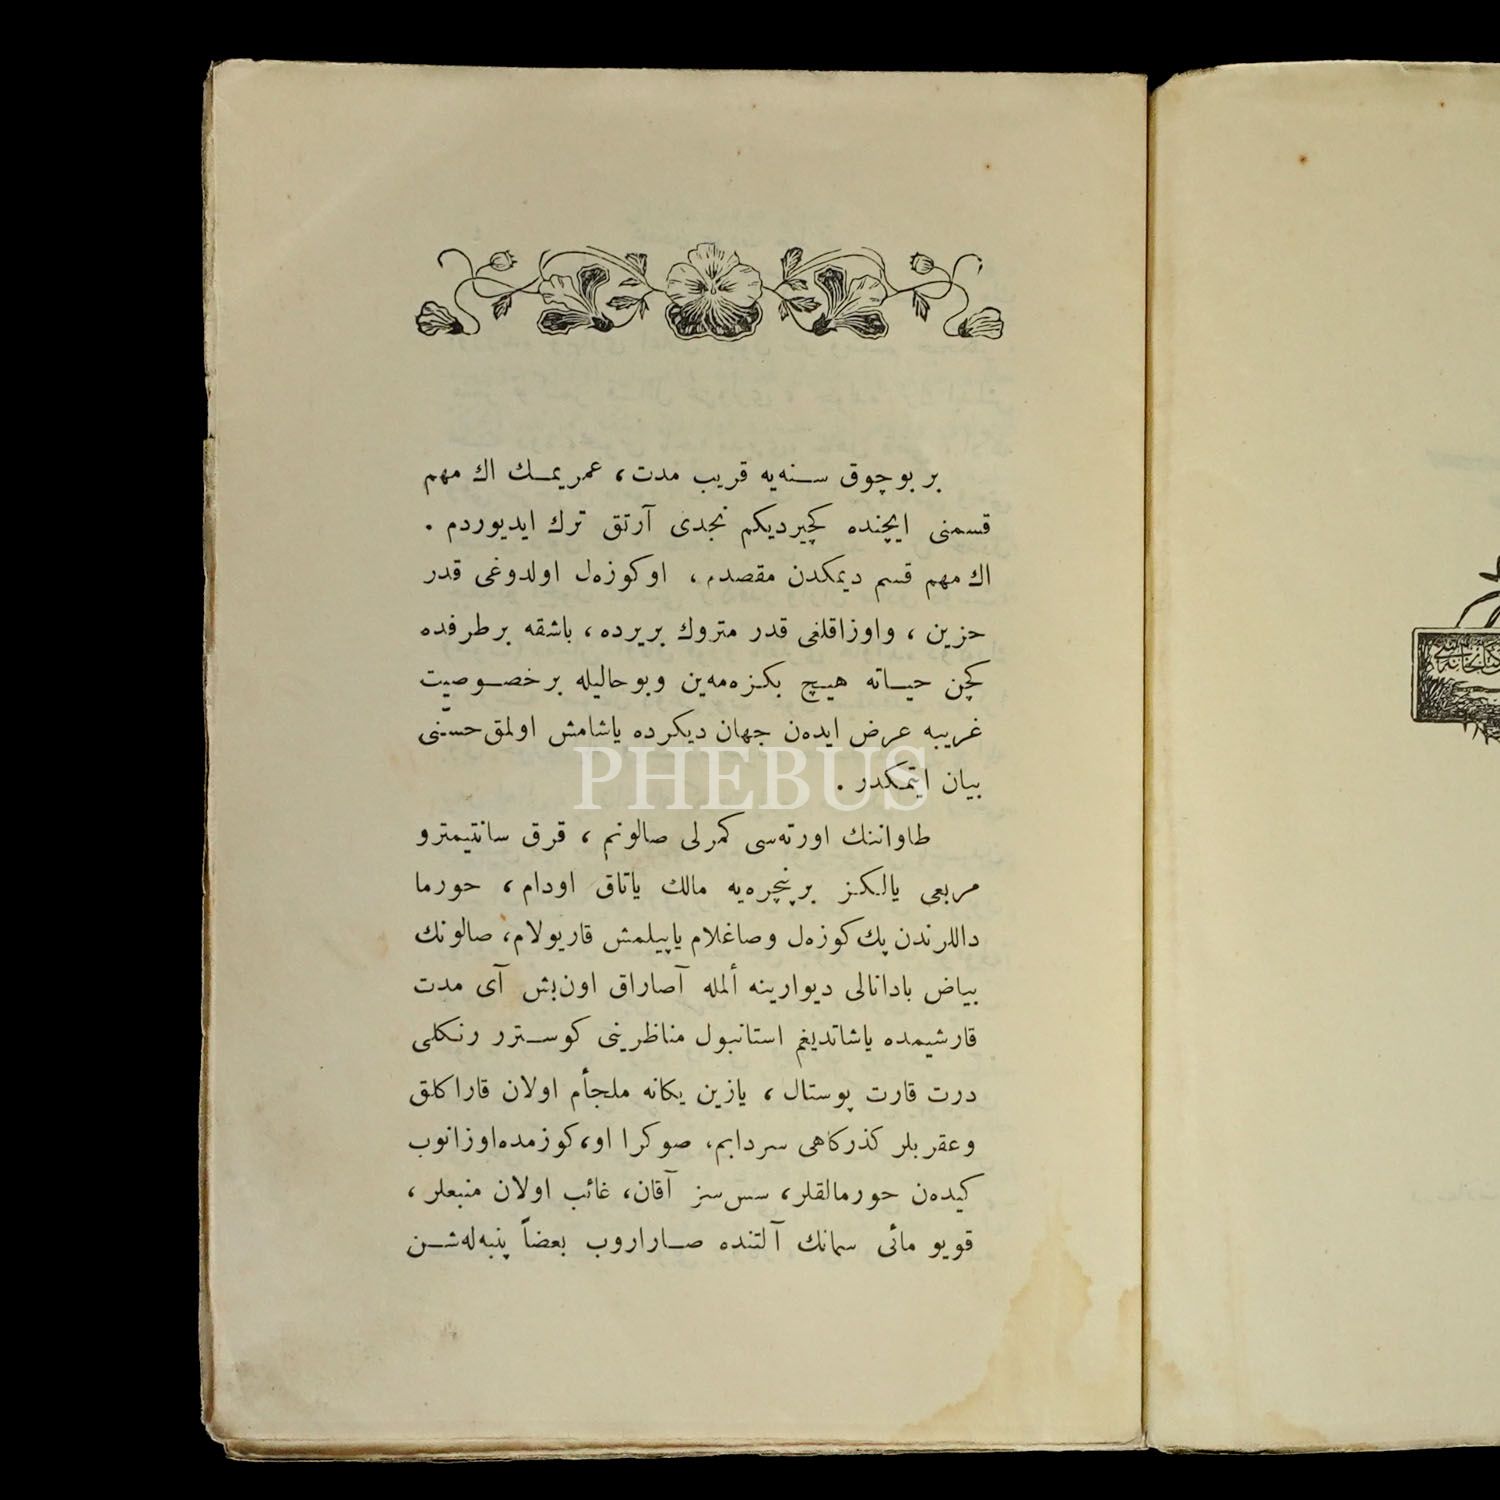 بر بوچوق سنه‌يه قريب مدت، عمريمك اك مهم
قسمنى ايچنده كچيرديكم نجدى آرتق ترك ايديوردم .
اك مهم قسم ديمكدن مقصدم ، او كوزه‌ل اولدوغى قدر
حزين ، واوزاقلغى قدر متروك بريرده ، باشقه برطرفده
كچن حياته هيچ بكزه‌مه‌ين وبوحاليله برخصوصيت
غريبه عرض ايده‌ن جهان ديكرده ياشامش اولمق حسّنى
بيان ايتمكدر .
PHEBUS
طاواننك اورته‌سى كمرلى صالونم ، قرق سانتيمترو
مربعى يالكز برپنچره‌يه مالك ياتاق اودام ، حورما
داللرندن پك كوزه‌ل وصاغلام ياپيلمش قاريولام، صالونك
بياض بادانالى ديوارينه ألمله آصاراق اون‌بش آى مدت
قارشيمده ياشاتديغم استانبول مناظرينى كوسترر رنكلى
درت قارت پوستال ، يازين يكانه ملجأم اولان قاراكلق
وعقربلر كذركاهى سردابم، صوكرا او، كوزمده‌اوزانوب
كيده‌ن حورمالقلر، سس‌سز آقان، غائب اولان منبعلر ،
قويو مائى سمانك آلتنده صاراروب بعضاً پنبه‌له‌شن